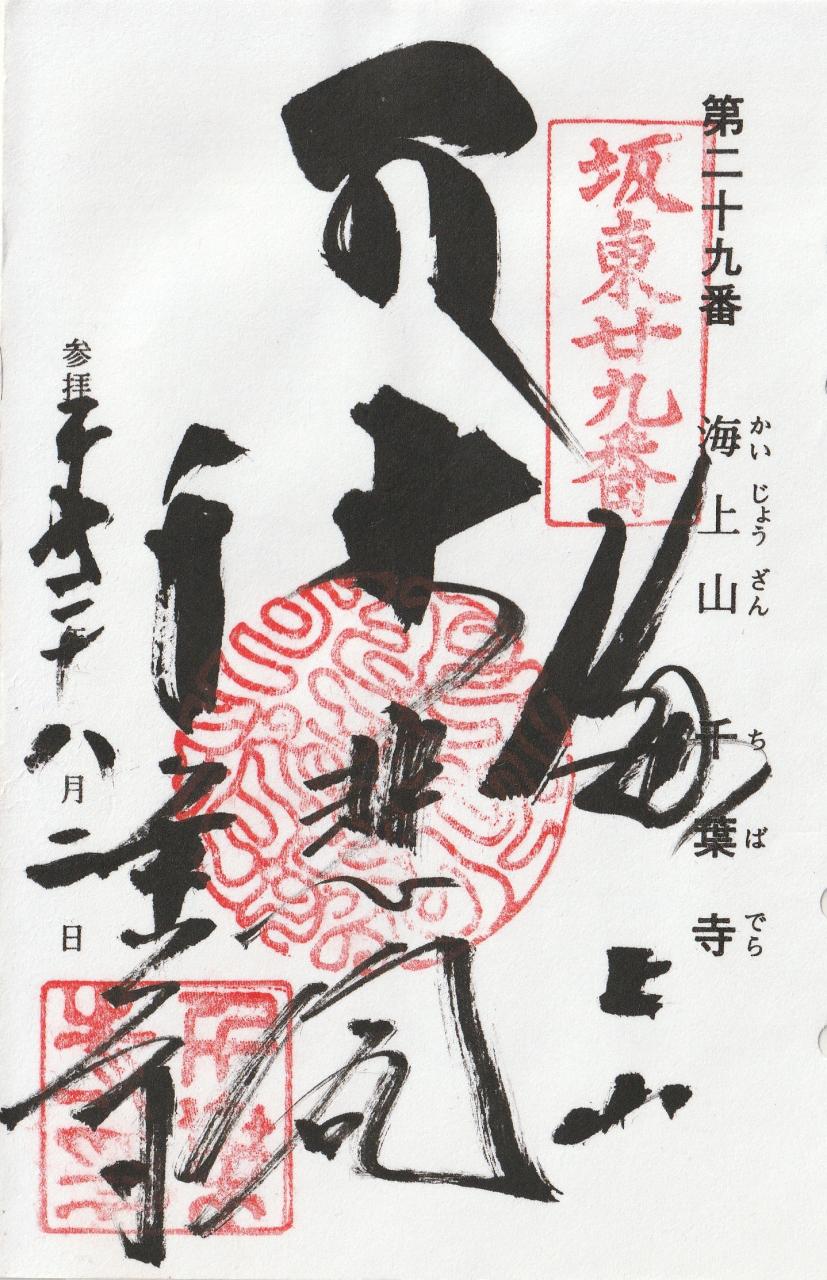 第二十九番 海上山 千葉寺
かいじょうざん ちばでら
坂東廿九番
海上山
大悲閣
千葉寺
参拝 平成二十八月二日